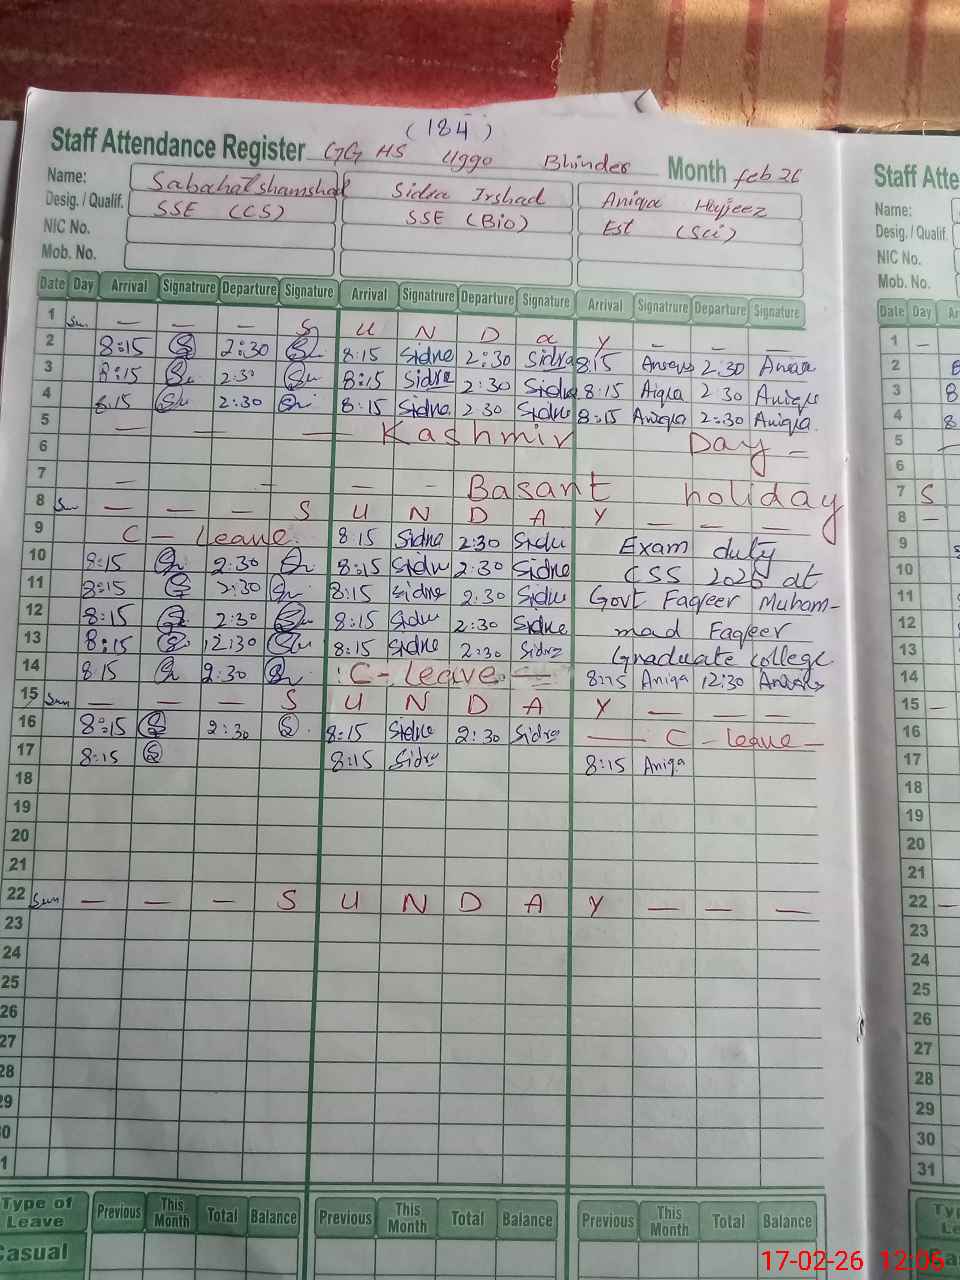 (184)
Staff Attendance Register GG HS Uggo Bhinder Month feb 26
Name: Sabahat shamshad Sidra Irshad Aniqa Hafeez
Desig. / Qualif. SSE (CS) SSE (Bio) Est (Sci)
NIC No.
Mob. No.
Date Day Arrival Signatrure Departure Signature Arrival Signatrure Departure Signature Arrival Signatrure Departure Signature
1 Sun — — — S U N D a Y — — —
2 8:15 2:30 8:15 Sidre 2:30 Sidra 8:15 2:30
3 8:15 2:30 8:15 Sidra 2:30 Sidra 8:15 Aiqla 2 30 Aniqa
4 8:15 2:30 8:15 Sidra 2 30 Sidra 8:15 Aniqla 2:30 Aniqla
5 — — — Kashmir Day —
6
7 — - — - Basant holiday
8 Sun — — — S U N D A Y — — —
9 C - Leave. 8:15 Sidne 2:30 Sidu Exam duty
10 8:15 2:30 8:15 Sidu 2:30 Sidne CSS 2026 at
11 8:15 2:30 8:15 Sidne 2:30 Sidu Govt Faqeer Muham-
12 8:15 2:30 8:15 Sidu 2:30 Sidne mad Faqeer
13 8:15 12:30 8:15 Sidne 2:30 Sidra Graduate college
14 815 2:30 C - Leave 8:15 Aniqa 12:30
15 Sun — — — S U N D A Y — — —
16 8:15 2:30 8:15 Sidre 2:30 Sidra — C - leave -
17 8:15 8:15 Sidra 8:15 Aniqa
18
19
20
21
22 Sun — — — S U N D A Y — — —
23
24
25
26
27
28
29
0
1
Type of Leave Previous This Month Total Balance Previous This Month Total Balance Previous This Month Total Balance
Casual
Staff Atte
Name:
Desig. / Qualif.
NIC No.
Mob. No.
Date Day Ar
1 —
2 8
3 8
4 8
5
6
7 S
8 —
9
10
11
12
13
14
15 —
16
17
18
19
20
21
22 —
23
24
25
26
27
28
29
30
31
17-02-26 12:06